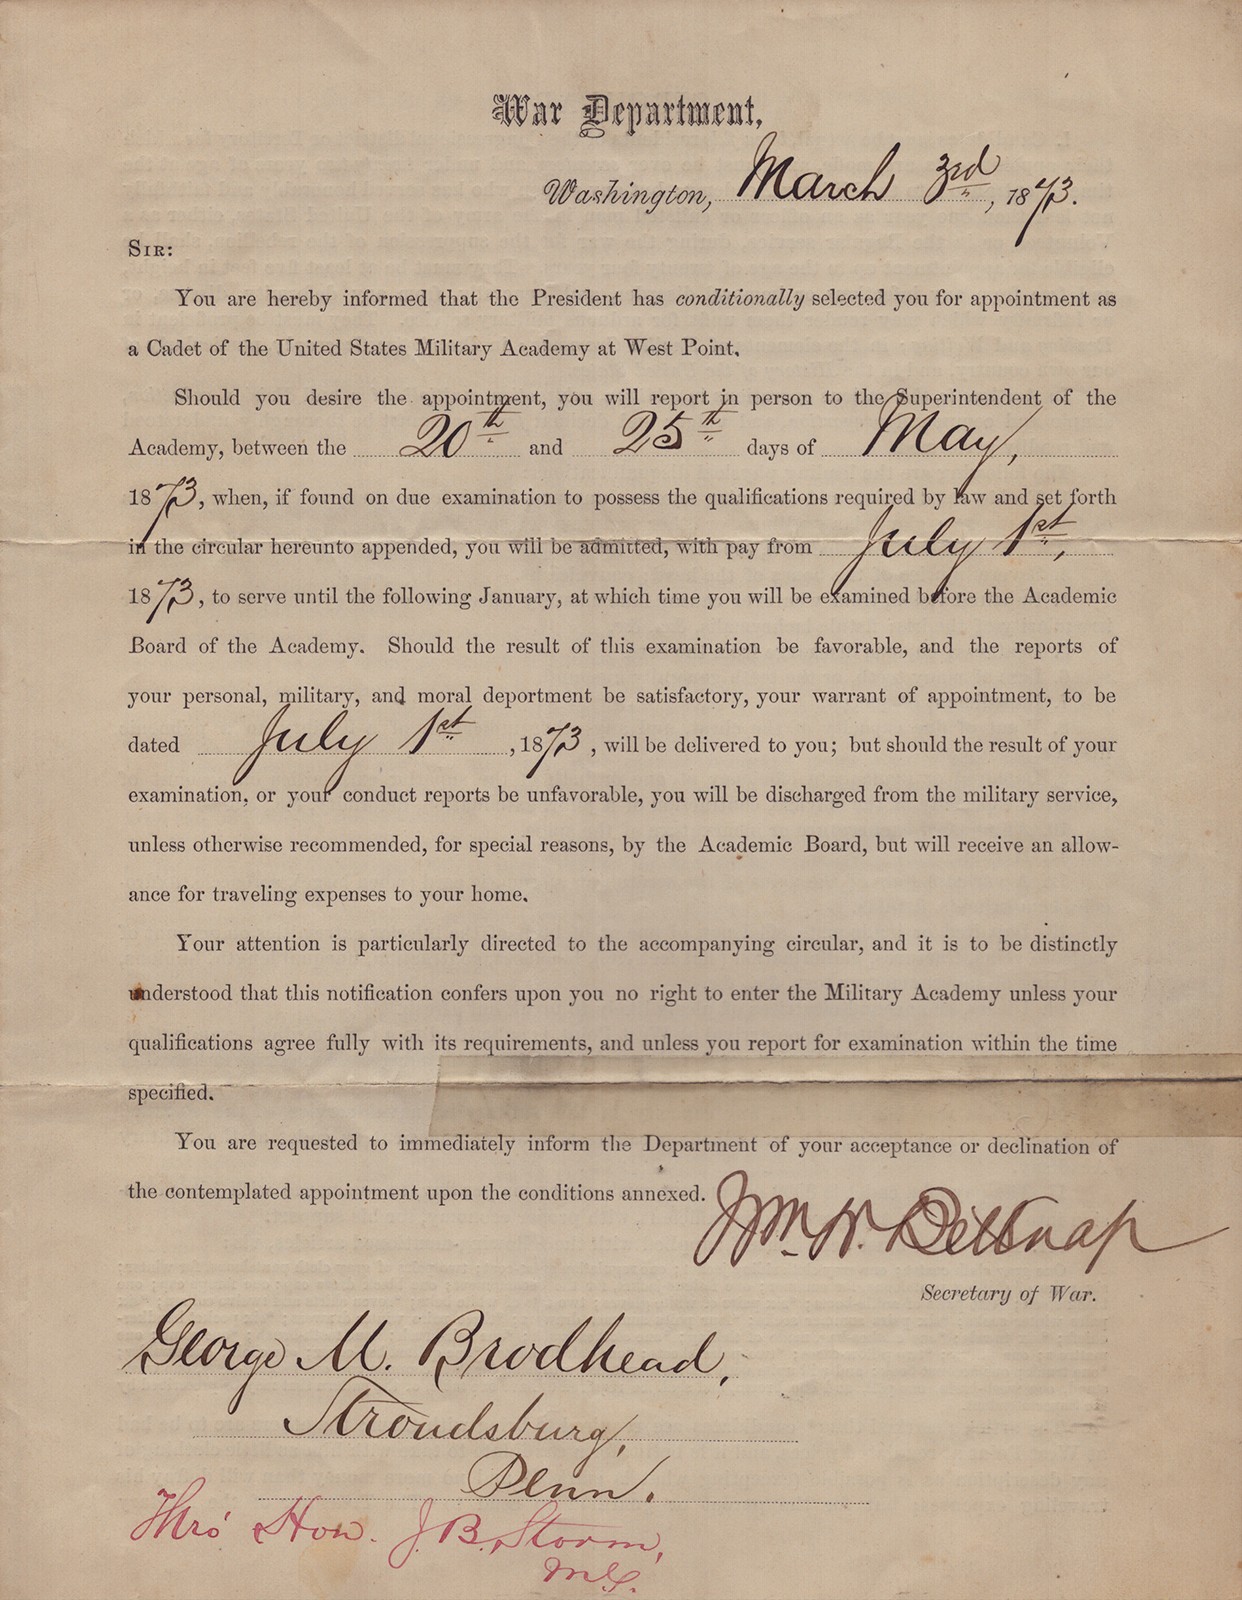 War Department,
Washington, March 3rd, 1873.
SIR:
You are hereby informed that the President has conditionally selected you for appointment as
a Cadet of the United States Military Academy at West Point.
Should you desire the appointment, you will report in person to the Superintendent of the
Academy, between the 20th and 25th days of May,
1873, when, if found on due examination to possess the qualifications required by law and set forth
in the circular hereunto appended, you will be admitted, with pay from July 1st,
1873, to serve until the following January, at which time you will be examined before the Academic
Board of the Academy. Should the result of this examination be favorable, and the reports of
your personal, military, and moral deportment be satisfactory, your warrant of appointment, to be
dated July 1st, 1873, will be delivered to you; but should the result of your
examination, or your conduct reports be unfavorable, you will be discharged from the military service,
unless otherwise recommended, for special reasons, by the Academic Board, but will receive an allow-
ance for traveling expenses to your home.
Your attention is particularly directed to the accompanying circular, and it is to be distinctly
understood that this notification confers upon you no right to enter the Military Academy unless your
qualifications agree fully with its requirements, and unless you report for examination within the time
specified.
You are requested to immediately inform the Department of your acceptance or declination of
the contemplated appointment upon the conditions annexed.
Wm. W. Belknap
Secretary of War.
George M. Brodhead,
Stroudsburg,
Penn.
Thro' Hon. J. B. Storm,
M.C.